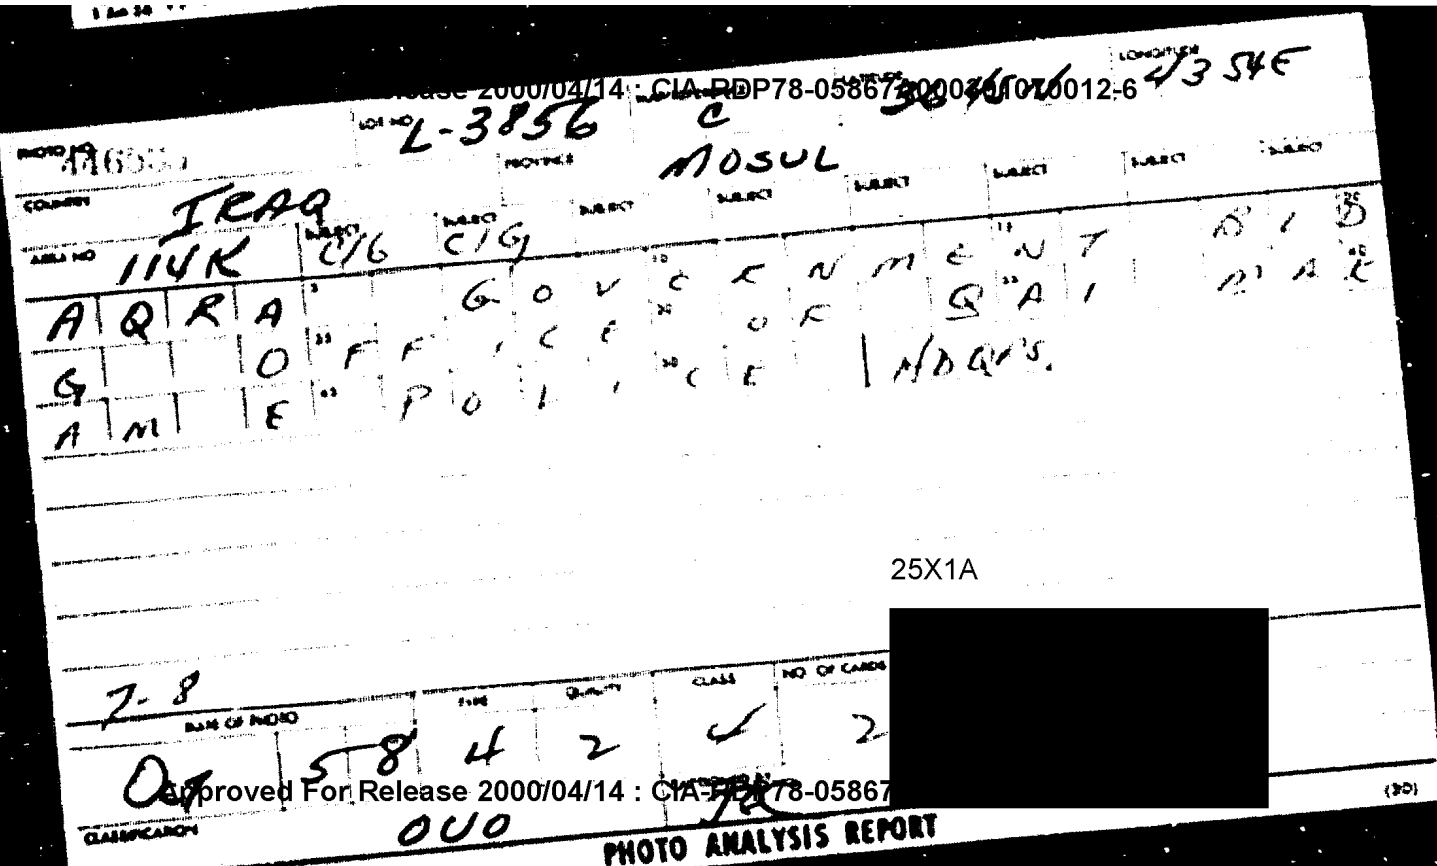 LONGITUDE
Release 2000/04/14 : CIA-RDP78-05867A000301070012-6
43 54E
LOT NO L-3856 C
PHOTO NO
PROVINCE MOSUL
COUNTRY IRAQ SUBJECT SUBJECT SUBJECT SUBJECT SUBJECT SUBJECT SUBJECT SUBJECT
AREA NO 114K C/G C/G
AQRA GOVERNMENT BLD
G OFFICE OF QAI MAK
AM E POLICE HDQRS.
25X1A
7-8
DATE OF PHOTO TYPE QUALITY CLASS NO OF CARDS
58 4 2 2
Approved For Release 2000/04/14 : CIA-RDP78-05867
(30)
CLASSIFICATION OUO
PHOTO ANALYSIS REPORT